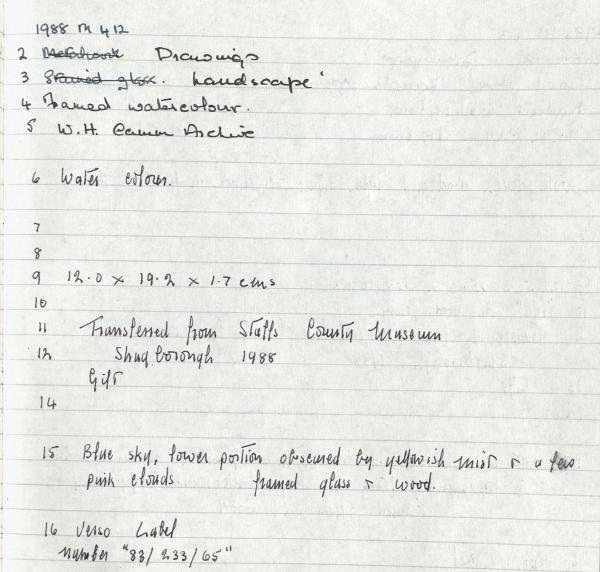 1988 M 412
2 Metalwork Drawings
3 Stained glass. Landscape
4 Framed watercolour.
5 W.H. Archive
6 Water colour.
7
8
9 12.0 x 19.2 x 1.7 cms
10
11 Transferred from Staffs County Museum
12 Shugborough 1988
Gift
14
15 Blue sky, lower portion obscured by yellowish mist & a few
pink clouds framed glass & wood.
16 Verso Label
number "83/233/65"